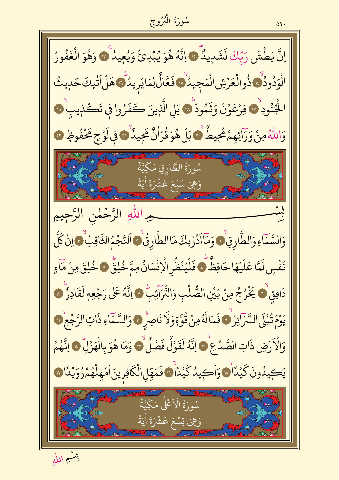 سُورَةُ الْبُرُوجِ
٥٩٠
اِنَّ بَطْشَ رَبِّكَ لَشَدِيدٌ ﴿١٢﴾ اِنَّهُ هُوَ يُبْدِئُ وَيُعِيدُ ﴿١٣﴾ وَهُوَ الْغَفُورُ
الْوَدُودُ ﴿١٤﴾ ذُو الْعَرْشِ الْمَجِيدُ ﴿١٥﴾ فَعَّالٌ لِمَا يُرِيدُ ﴿١٦﴾ هَلْ اَتٰيكَ حَدِيثُ
الْجُنُودِ ﴿١٧﴾ فِرْعَوْنَ وَثَمُودَ ﴿١٨﴾ بَلِ الَّذِينَ كَفَرُوا فِى تَكْذِيبٍ ﴿١٩﴾
وَاللّٰهُ مِنْ وَرَائِهِمْ مُحِيطٌ ﴿٢٠﴾ بَلْ هُوَ قُرْاٰنٌ مَجِيدٌ ﴿٢١﴾ فِى لَوْحٍ مَحْفُوظٍ ﴿٢٢﴾
سُورَةُ الطَّارِقِ مَكِّيَّةٌ
وَهِىَ سَبْعَ عَشْرَةَ اٰيَةً
بِسْمِ اللّٰهِ الرَّحْمٰنِ الرَّحِيمِ
وَالسَّمَاءِ وَالطَّارِقِ ﴿١﴾ وَمَا اَدْرٰيكَ مَا الطَّارِقُ ﴿٢﴾ اَلنَّجْمُ الثَّاقِبُ ﴿٣﴾ اِنْ كُلُّ
نَفْسٍ لَمَّا عَلَيْهَا حَافِظٌ ﴿٤﴾ فَلْيَنْظُرِ الْاِنْسَانُ مِمَّ خُلِقَ ﴿٥﴾ خُلِقَ مِنْ مَاءٍ
دَافِقٍ ﴿٦﴾ يَخْرُجُ مِنْ بَيْنِ الصُّلْبِ وَالتَّرَائِبِ ﴿٧﴾ اِنَّهُ عَلٰى رَجْعِهِ لَقَادِرٌ ﴿٨﴾
يَوْمَ تُبْلَى السَّرَائِرُ ﴿٩﴾ فَمَا لَهُ مِنْ قُوَّةٍ وَلَا نَاصِرٍ ﴿١٠﴾ وَالسَّمَاءِ ذَاتِ الرَّجْعِ ﴿١١﴾
وَالْاَرْضِ ذَاتِ الصَّدْعِ ﴿١٢﴾ اِنَّهُ لَقَوْلٌ فَصْلٌ ﴿١٣﴾ وَمَا هُوَ بِالْهَزْلِ ﴿١٤﴾ اِنَّهُمْ
يَكِيدُونَ كَيْدًا ﴿١٥﴾ وَاَكِيدُ كَيْدًا ﴿١٦﴾ فَمَهِّلِ الْكَافِرِينَ اَمْهِلْهُمْ رُوَيْدًا ﴿١٧﴾
سُورَةُ الْاَعْلٰى مَكِّيَّةٌ
وَهِىَ تِسْعَ عَشْرَةَ اٰيَةً
بِسْمِ اللّٰهِ